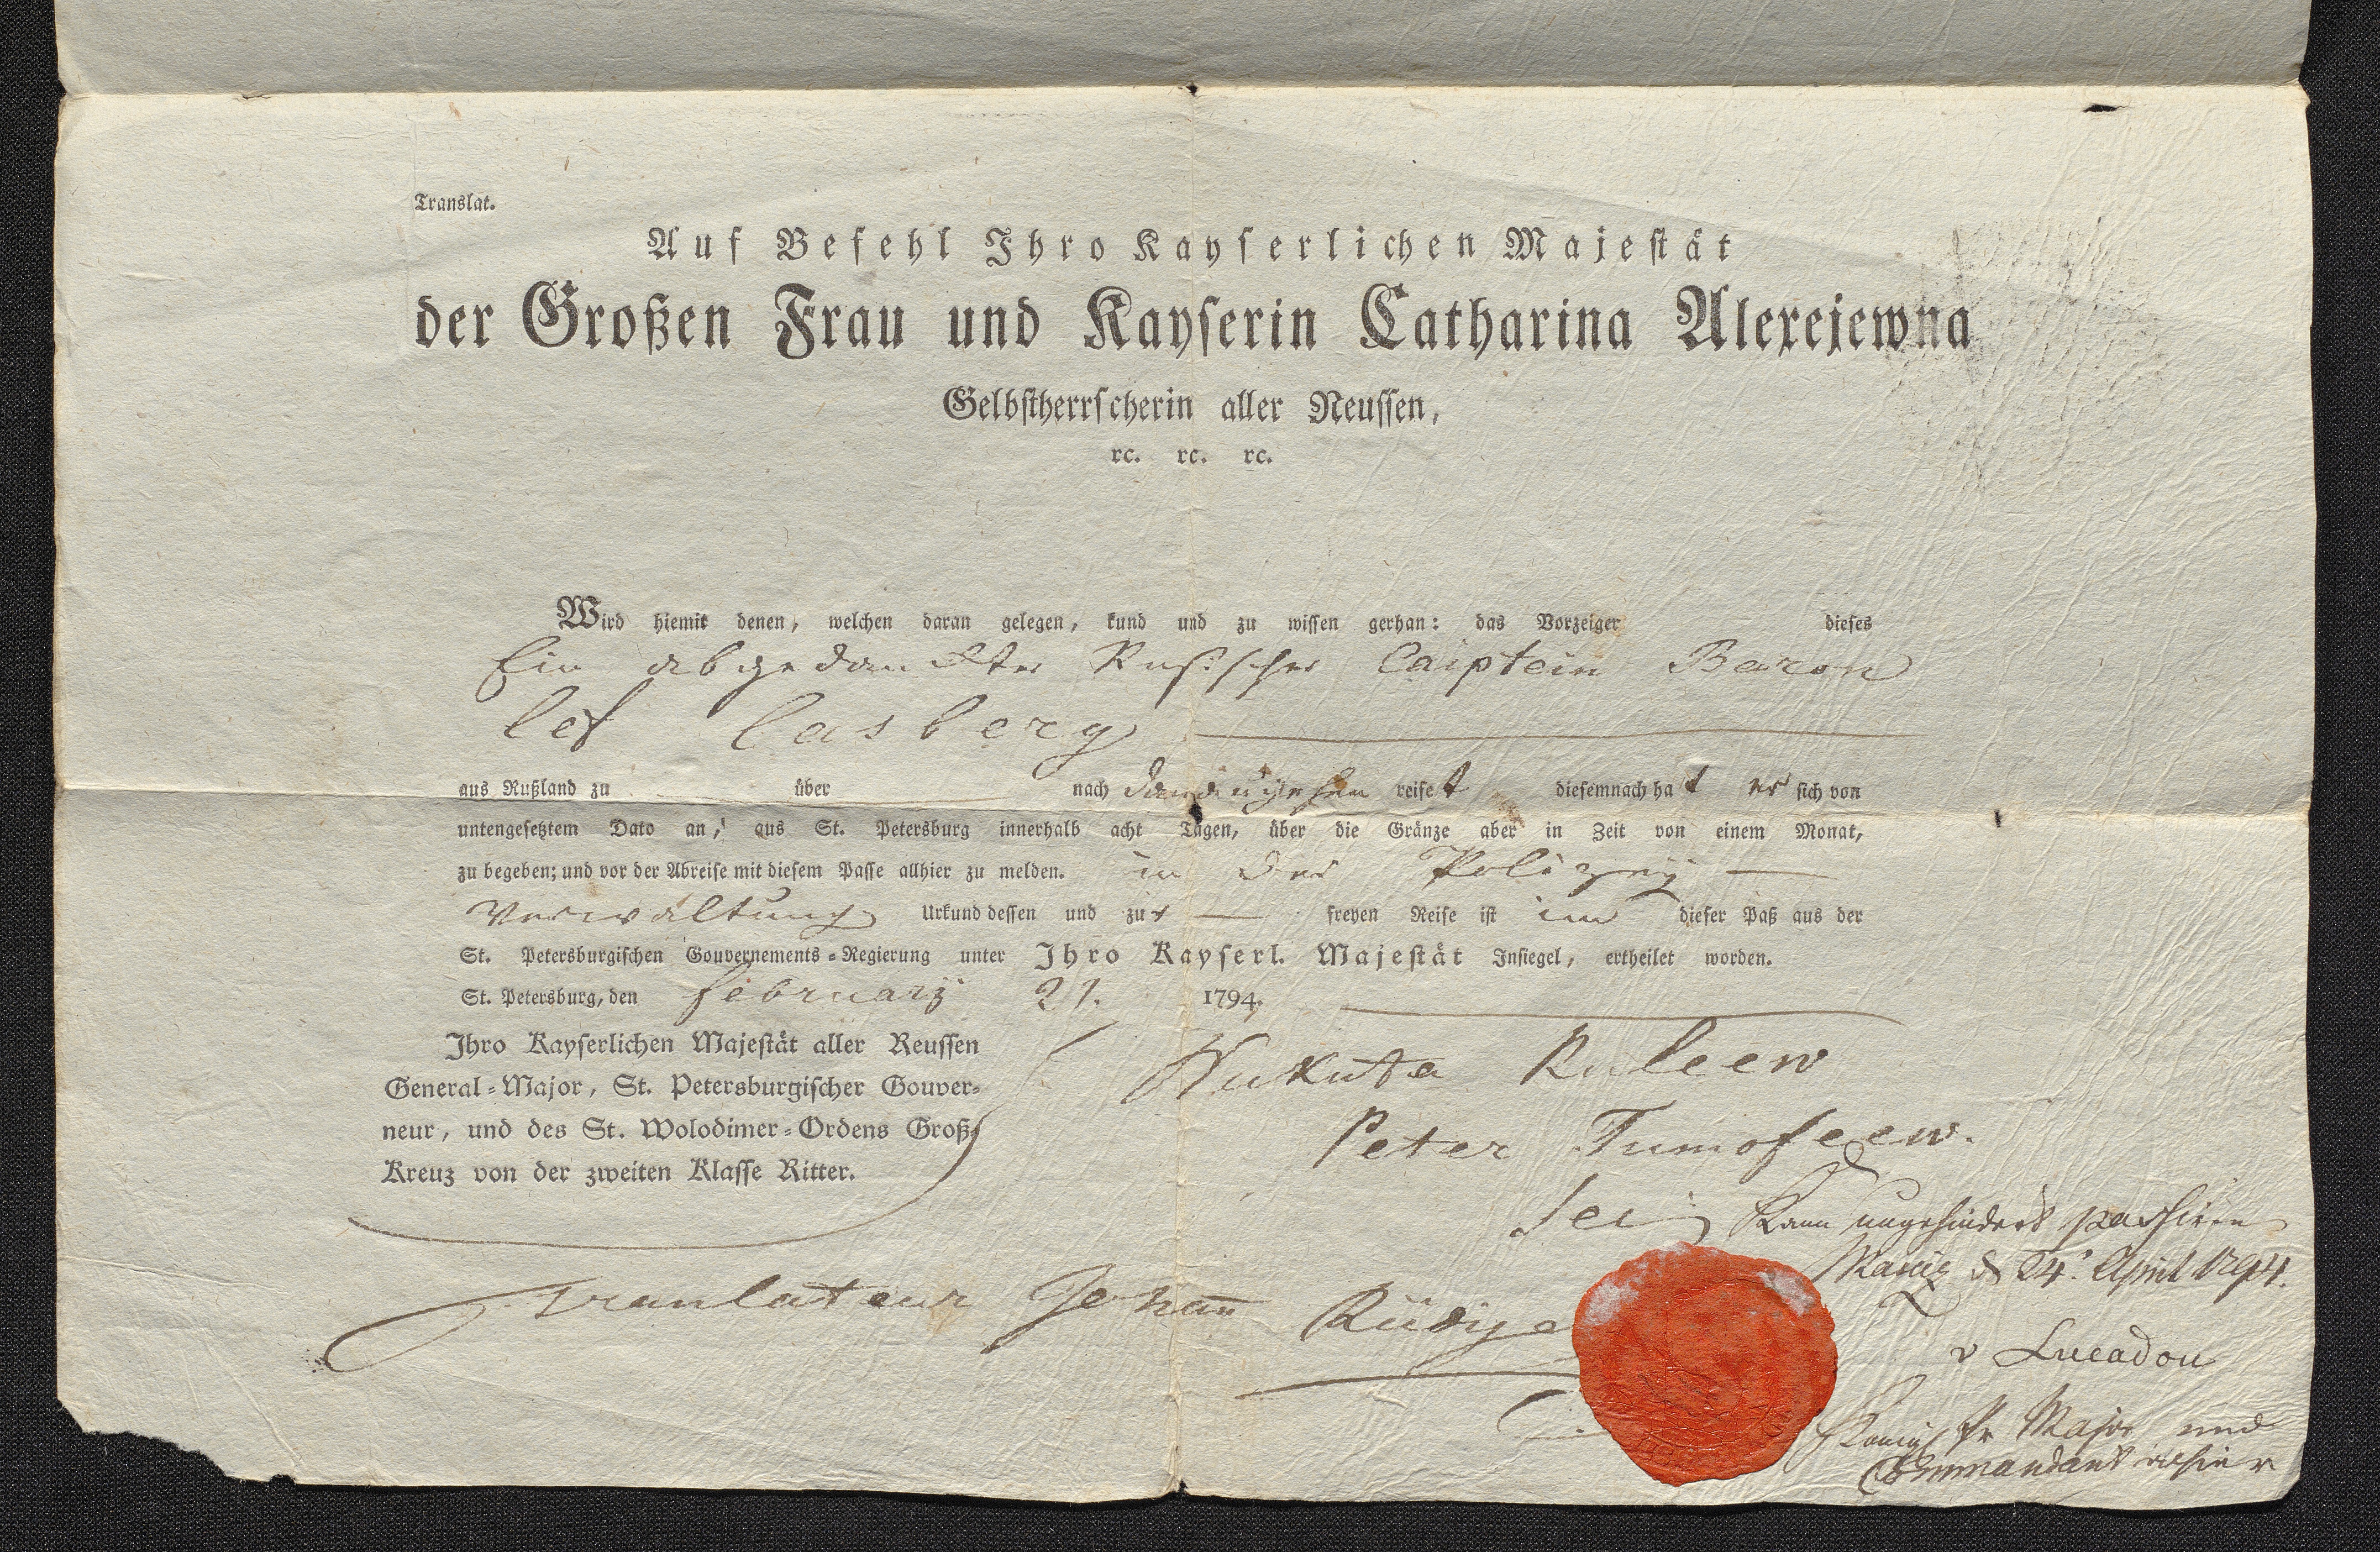 Translat.
Auf Befehl Ihro Kayserlichen Majestät
der Großen Frau und Kayserin Catharina Alexejewna
Selbstherrscherin aller Reussen,
ꝛc. ꝛc. ꝛc.
Wird hiemit denen, welchen daran gelegen, kund und zu wissen gethan: das Vorzeiger dieses
Ein abgedanckter Rußischer Caiptein Baron
lef lasberg
aus Rußland zu über nach reiset diesemnach hat er sich von
untengesetztem Dato an, aus St. Petersburg innerhalb acht Tagen, über die Gränze aber in Zeit von einem Monat,
zu begeben; und vor der Abreise mit diesem Passe allhier zu melden. in der Polizeÿ
Verwaltung Urkund dessen und zur freyen Reise ist ihm dieser Paß aus der
St. Petersburgischen Gouvernements-Regierung unter Ihro Kayserl. Majestät Insiegel, ertheilet worden.
St. Petersburg, den februarÿ 21. 1794.
Ihro Kayserlichen Majestät aller Reussen
General-Major, St. Petersburgischer Gouver-
neur, und des St. Wolodimer-Ordens Groß-
Kreuz von der zweiten Klasse Ritter.
Nukuta Ruleew
Peter Tumofeew.
Kann ungehindert passiren
d 24. April 1794.
Tranlateur Johan̅ Rüdige
v Lucadou
Königl Pr Major und
Commandant alhier